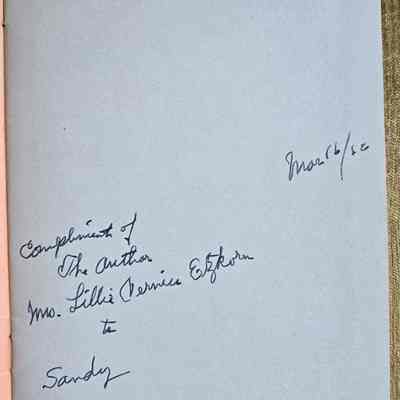 Mar 16/82
Compliment of
The Author
Mrs. Lillie Vernice Etzkorn
to
Sandy